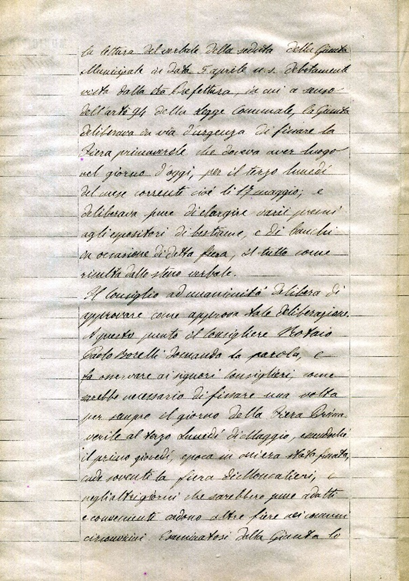 la lettura del verbale della seduta della Giunta
Municipale in data 5 aprile u. s. debitamente
vista dalla Prefettura, in cui a senso
dell'art. 94 della Legge Comunale, la Giunta
deliberava in via d'urgenza di fissare la
Fiera primaverile che doveva aver luogo
nel giorno d'oggi, per il terzo lunedì
del mese corrente cioè li 17 maggio, e
deliberava pure di elargire varii premi
agli espositori di bestiame, e di banchi
in occasione di detta fiera, il tutto come
risulta dallo stesso verbale.
Il Consiglio ad unanimità delibera di
approvare come approva tale deliberazione.
A questo punto il Consigliere Notaio
Paolo Borelli domanda la parola, e
fa osservare ai signori Consiglieri, come
sarebbe necessario di fissare una volta
per sempre il giorno della Fiera Prima-
verile al terzo Lunedì di Maggio, essendochè
il primo giovedì, epoca in cui era stata fissata,
cade sovente la fiera di Moncalieri, e
negli altri giorni che sarebbero pure adatti
e convenienti cadono altre fiere nei comuni
circonvicini. Commissari della Giunta lo